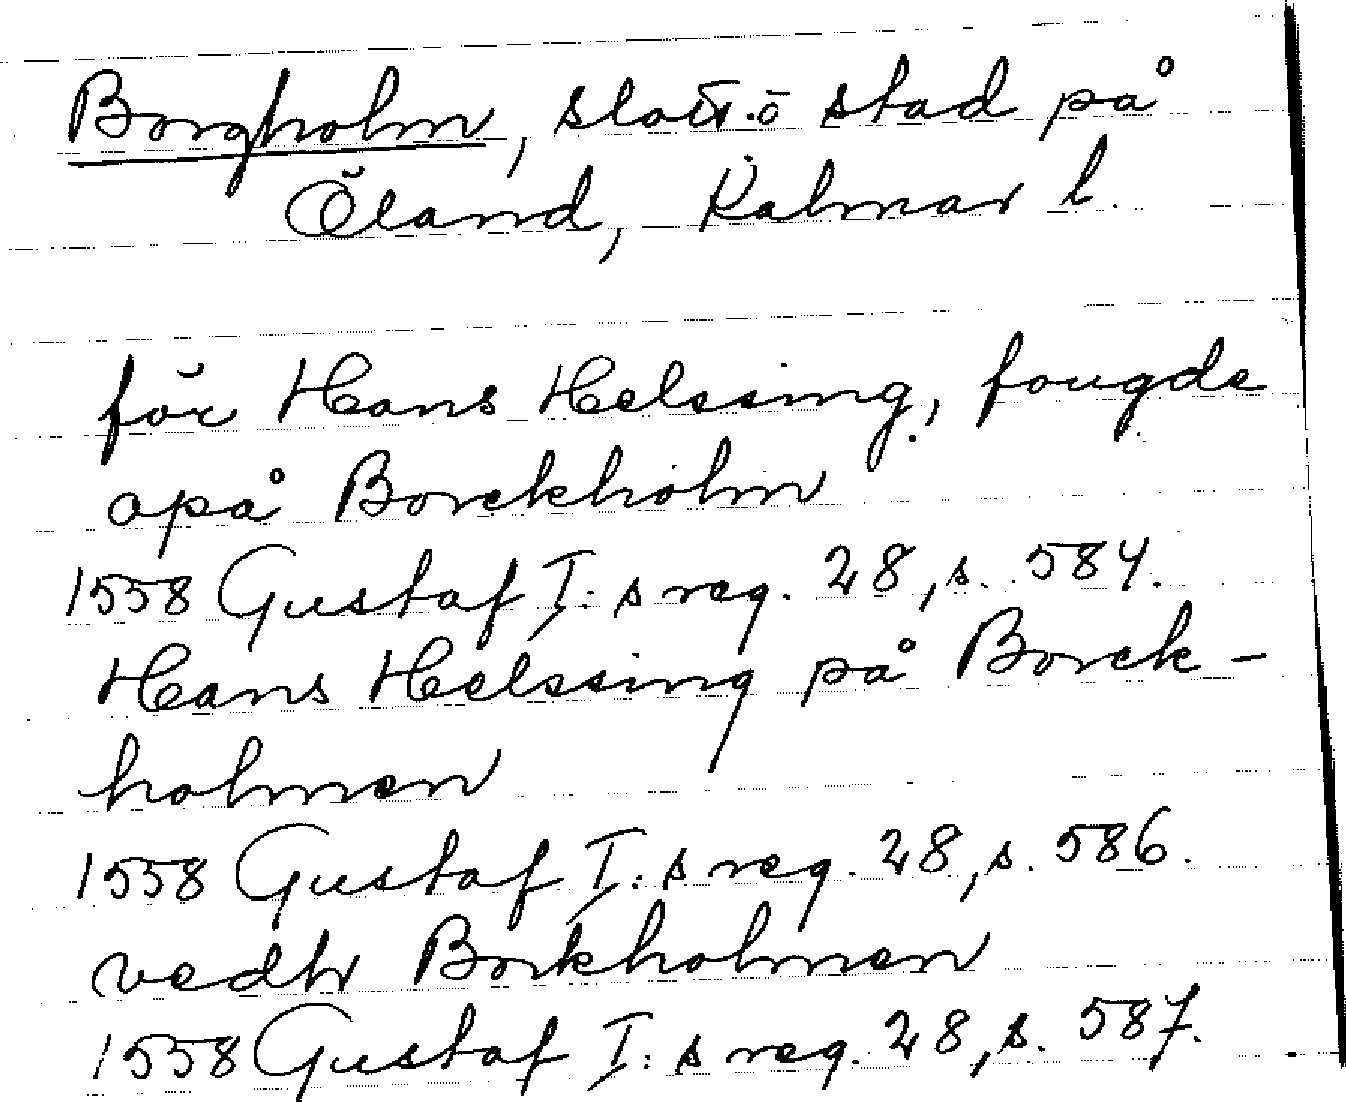 Borgholm, slott o stad på
Öland, Kalmar l.
för Hans Helssing, fougde
opå Borckholm
1558 Gustaf I:s reg. 28, s. 584.
Hans Helssing på Borck-
holmen
1558 Gustaf I:s reg. 28, s. 586.
vedh Borkholmen
1558 Gustaf I:s reg. 28, s. 587.